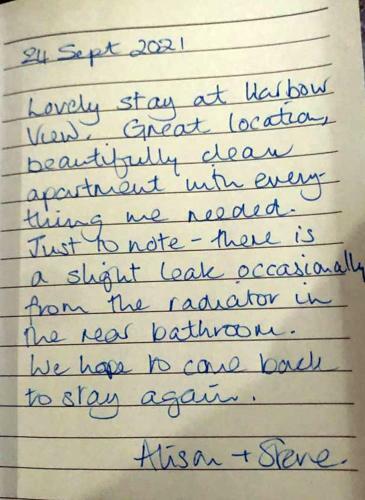 24 Sept 2021
Lovely stay at Harbour
View. Great location,
beautifully clean
apartment with every-
thing we needed.
Just to note - there is
a slight leak occasionally
from the radiator in
the rear bathroom.
We hope to come back
to stay again.
Alison + Steve.